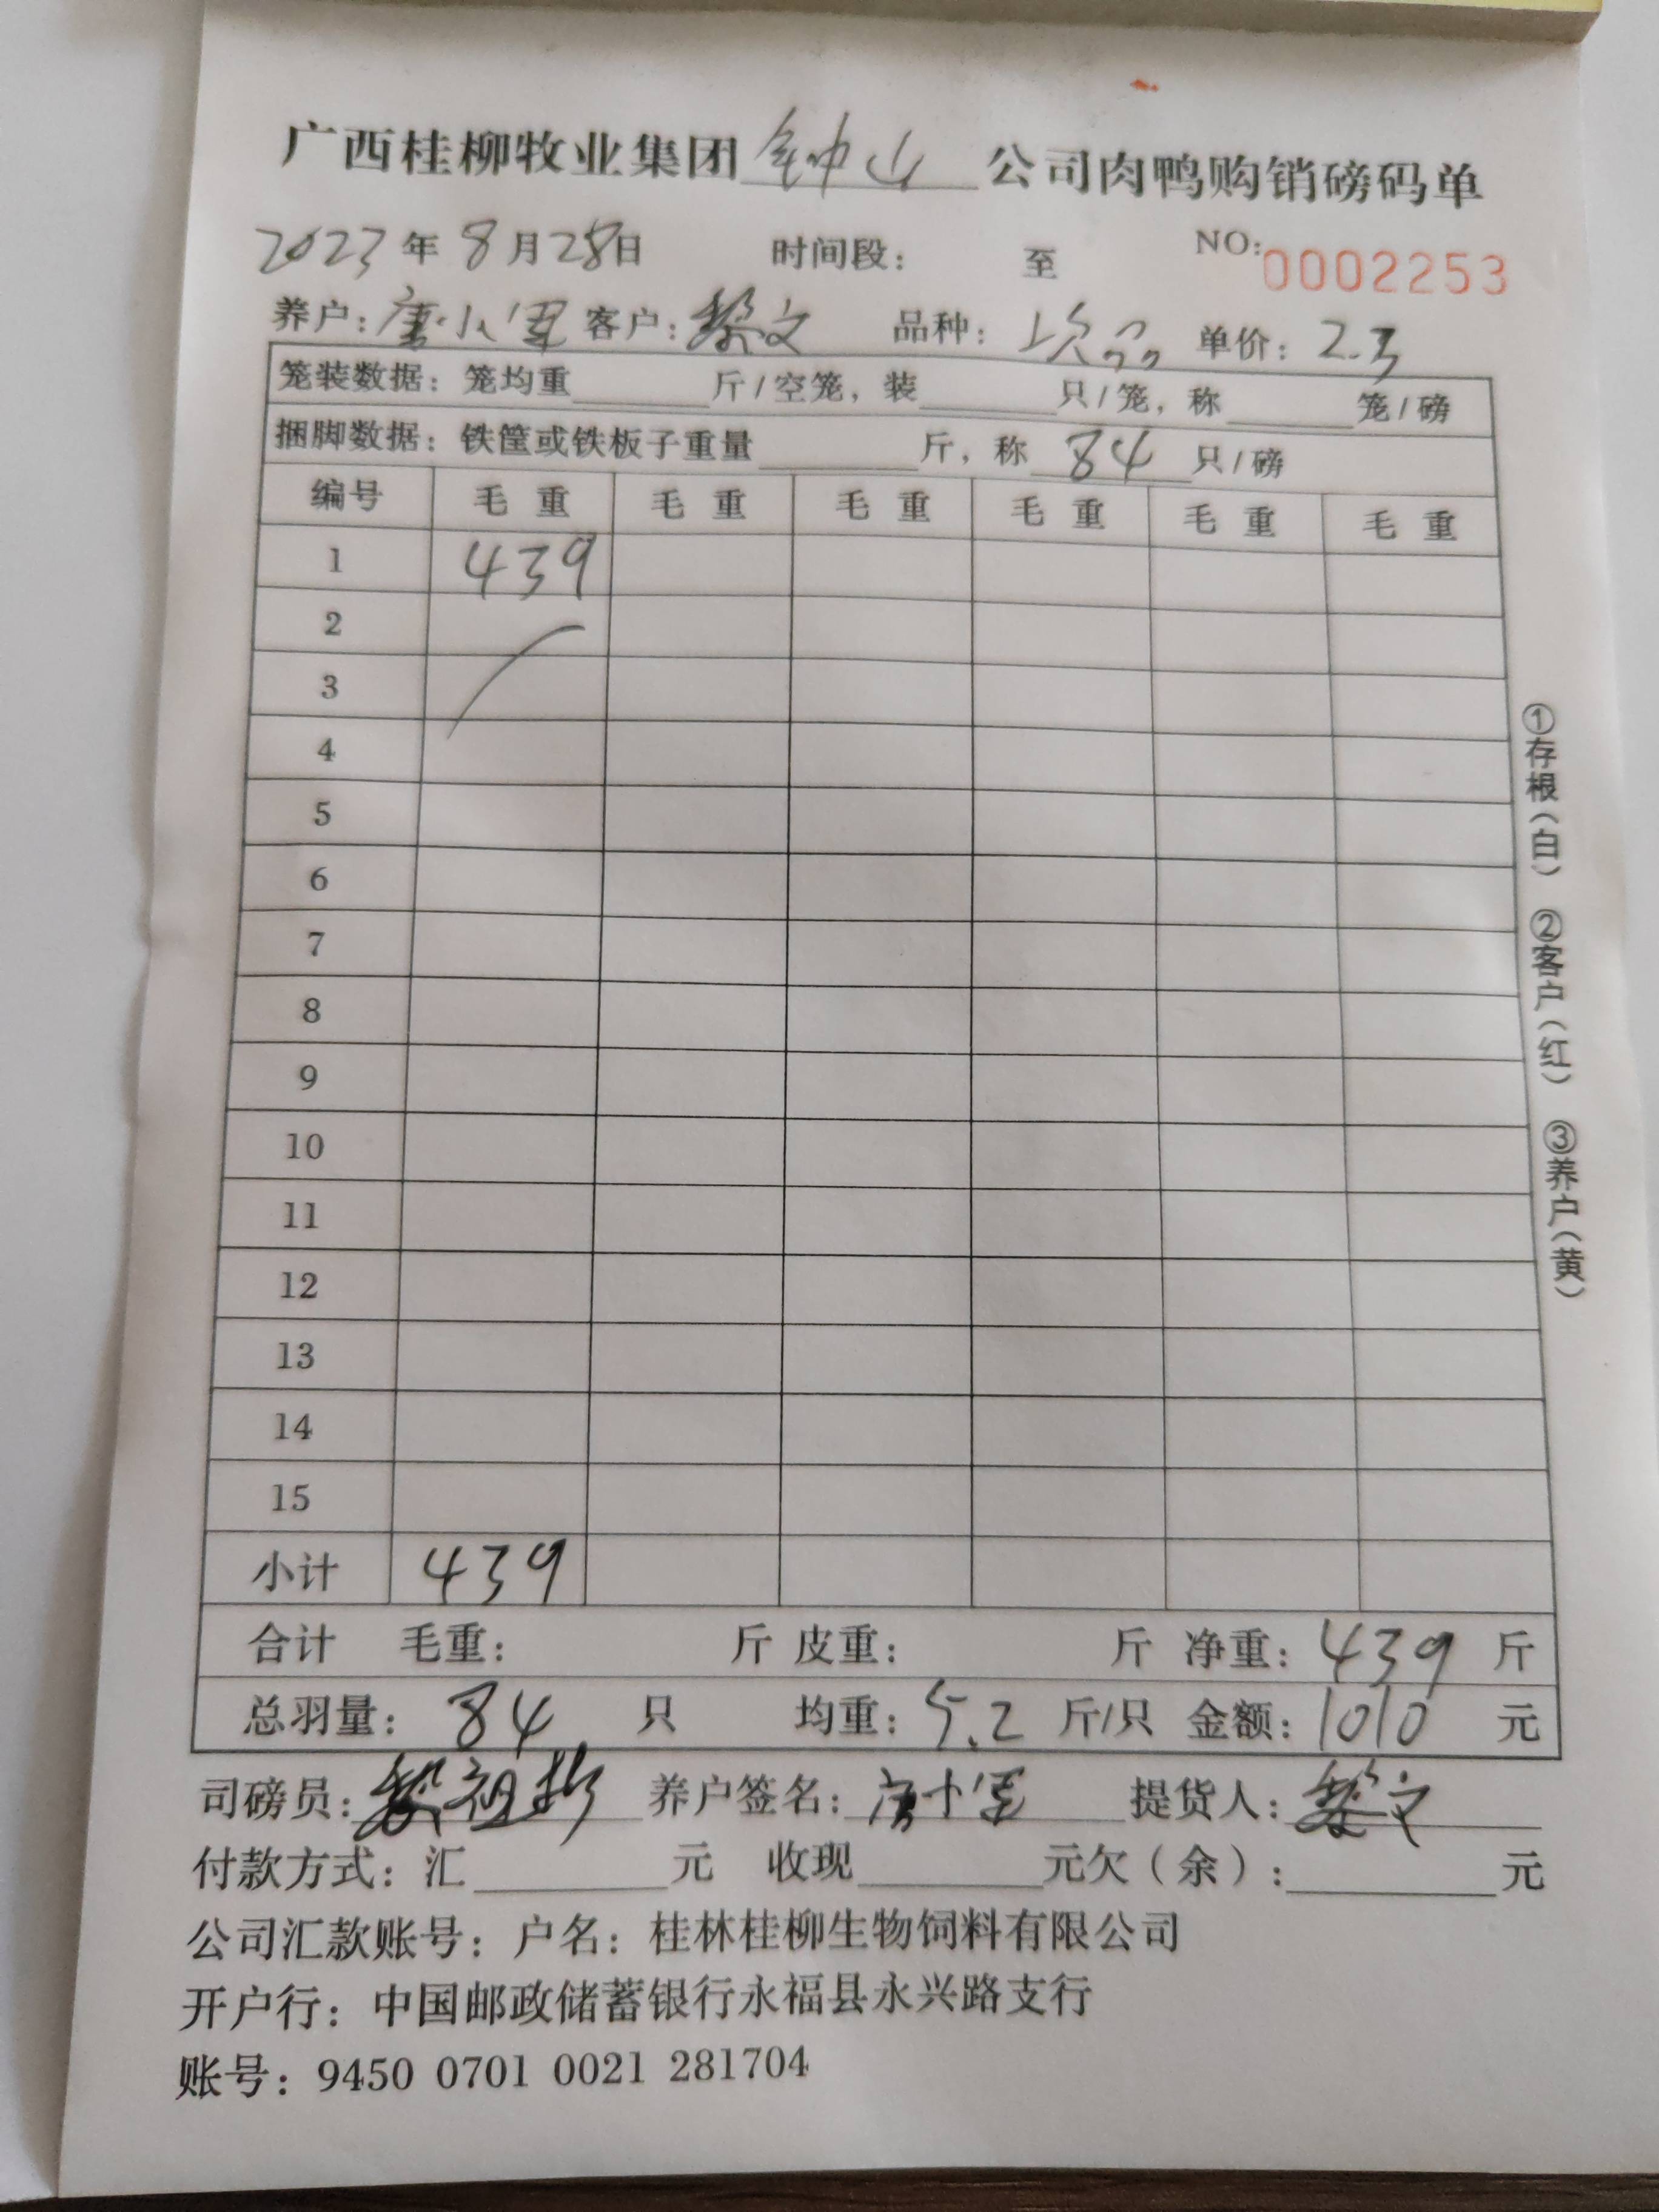 广西桂柳牧业集团钟山公司肉鸭购销磅码单
2023年8月28日 时间段： 至 NO:0002253
养户：唐小军 客户：黎文 品种：次品 单价：2.3
笼装数据：笼均重______斤/空笼，装______只/笼，称______笼/磅
捆脚数据：铁筐或铁板子重量______斤，称 84 只/磅
编号 毛重 毛重 毛重 毛重 毛重 毛重
1 439
2
3
4
5
6
7
8
9
10
11
12
13
14
15
小计 439
合计 毛重： 斤 皮重： 斤 净重：439 斤
总羽量：84 只 均重：5.2 斤/只 金额：1010 元
司磅员：黎祖 养户签名：唐小军 提货人：黎文
付款方式：汇______元 收现______元欠（余）：______元
公司汇款账号：户名：桂林桂柳生物饲料有限公司
开户行：中国邮政储蓄银行永福县永兴路支行
账号：9450 0701 0021 281704
①存根（白） ②客户（红） ③养户（黄）